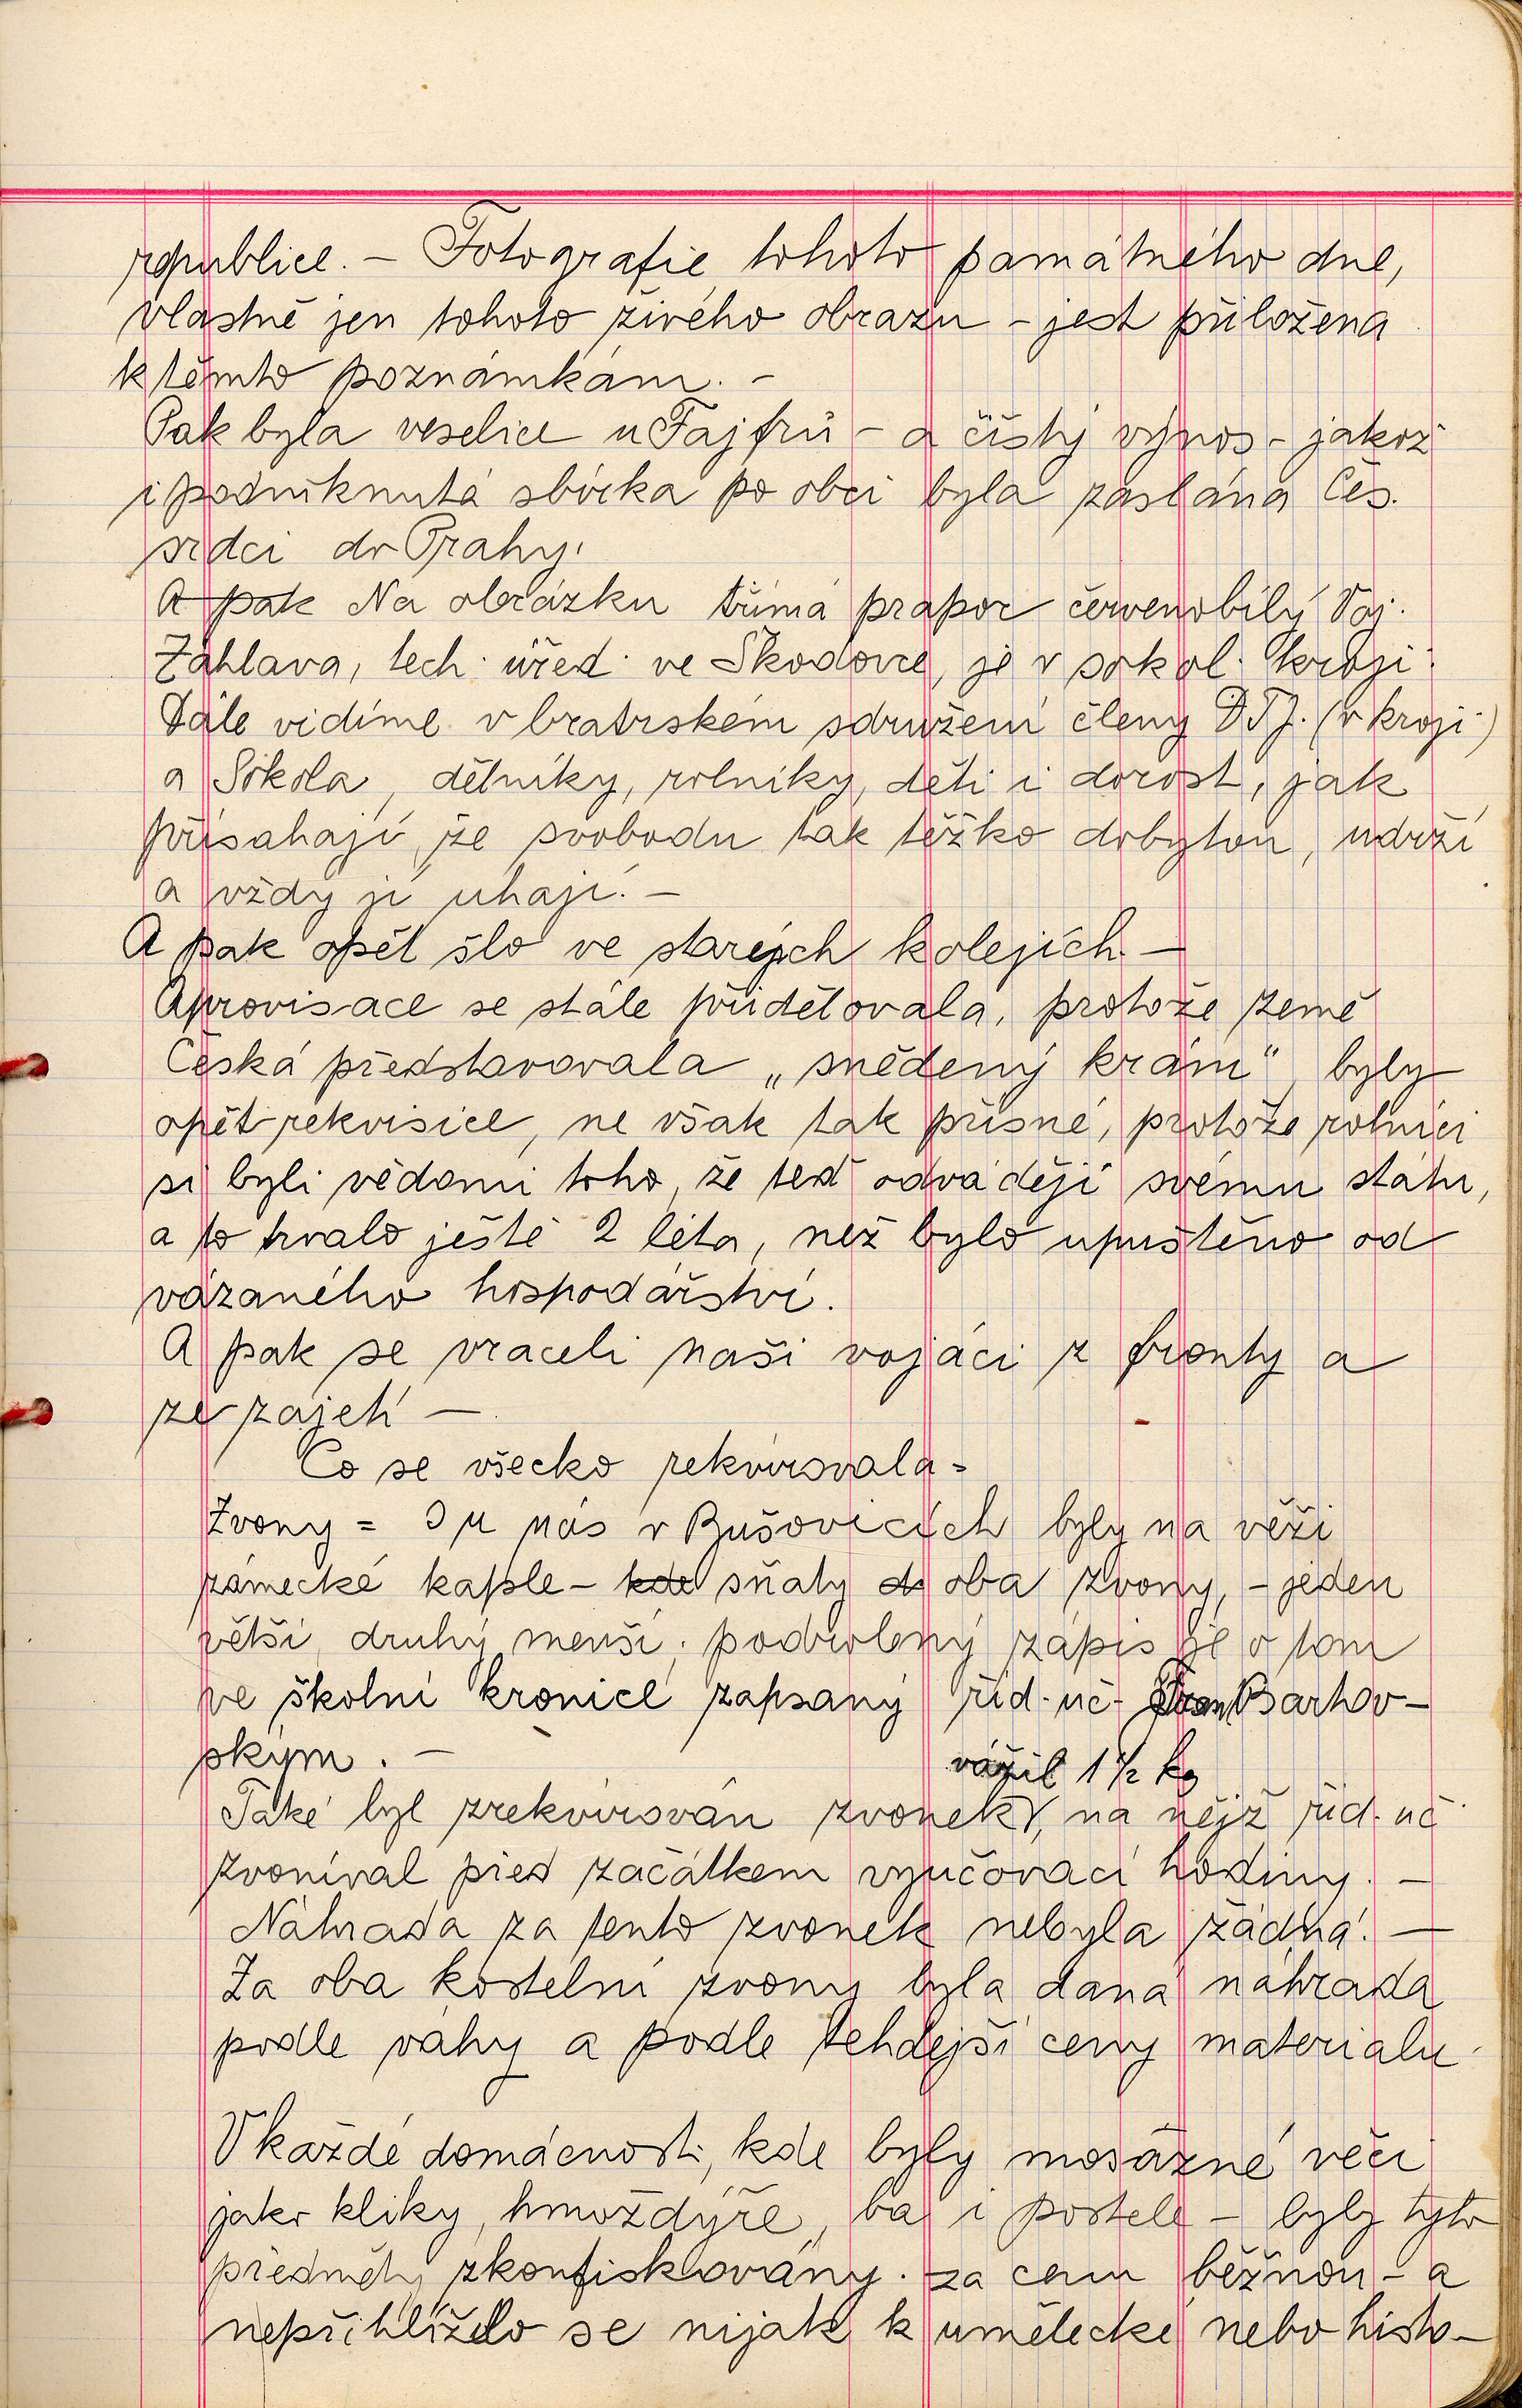 republice. – Fotografie tohoto památného dne,
vlastně jen tohoto živého obrazu – jest přiložena
k těmto poznámkám. –
Pak byla veselice u Fajfrů – a čistý výnos – jakož
i podniknutá sbírka po obci byla zaslána Čes.
srdci do Prahy.
A pak Na obrázku třímá prapor červenobílý Voj.
Záhlava, tech. úřed. ve Škodovce, je v sokol. kroji.
Dále vidíme v bratrském sdružení členy DTJ. (v kroji)
a Sokola, dělníky, rolníky, děti i dorost, jak
přísahají, že svobodu tak těžko dobytou, udrží
a vždy ji uhájí. –
A pak opět šlo ve starých kolejích. –
Aprovisace se stále přidělovala, protože země
Česká představovala „snědený krám“ byly
opět rekvisice, ne však tak přísné, protože rolníci
si byli vědomi toho, že teď odvádějí svému státu,
a to trvalo ještě 2 léta, než bylo upuštěno od
vázaného hospodářství.
A pak se vraceli naši vojáci z fronty a
ze zajetí –
Co se všecko rekvirovala =
Zvony = I u nás v Bušovicích byly na věži
zámecké kaple – kde sňaty oba zvony, – jeden
větší, druhý menší; podrobný zápis je o tom
ve školní kronice zapsaný říd. uč. Fran. Bartov-
ským. –
vážil 1 1/2 kg
Také byl zrekvirován zvonek, na nějž říd. uč.
zvoníval před začátkem vyučovací hodiny. –
Náhrada za tento zvonek nebyla žádná. –
Za oba kostelní zvony byla daná náhrada
podle váhy a podle tehdejší ceny materialu.
V každé domácnosti, kde byly mosázné věci
jako kliky, hmoždýře, ba i postele – byly tyto
předměty zkonfiskovány. za cenu běžnou – a
nepřihlíželo se nijak k umělecké nebo histo-